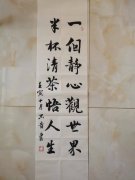 一個静心觀世界
半杯清茶悟人生